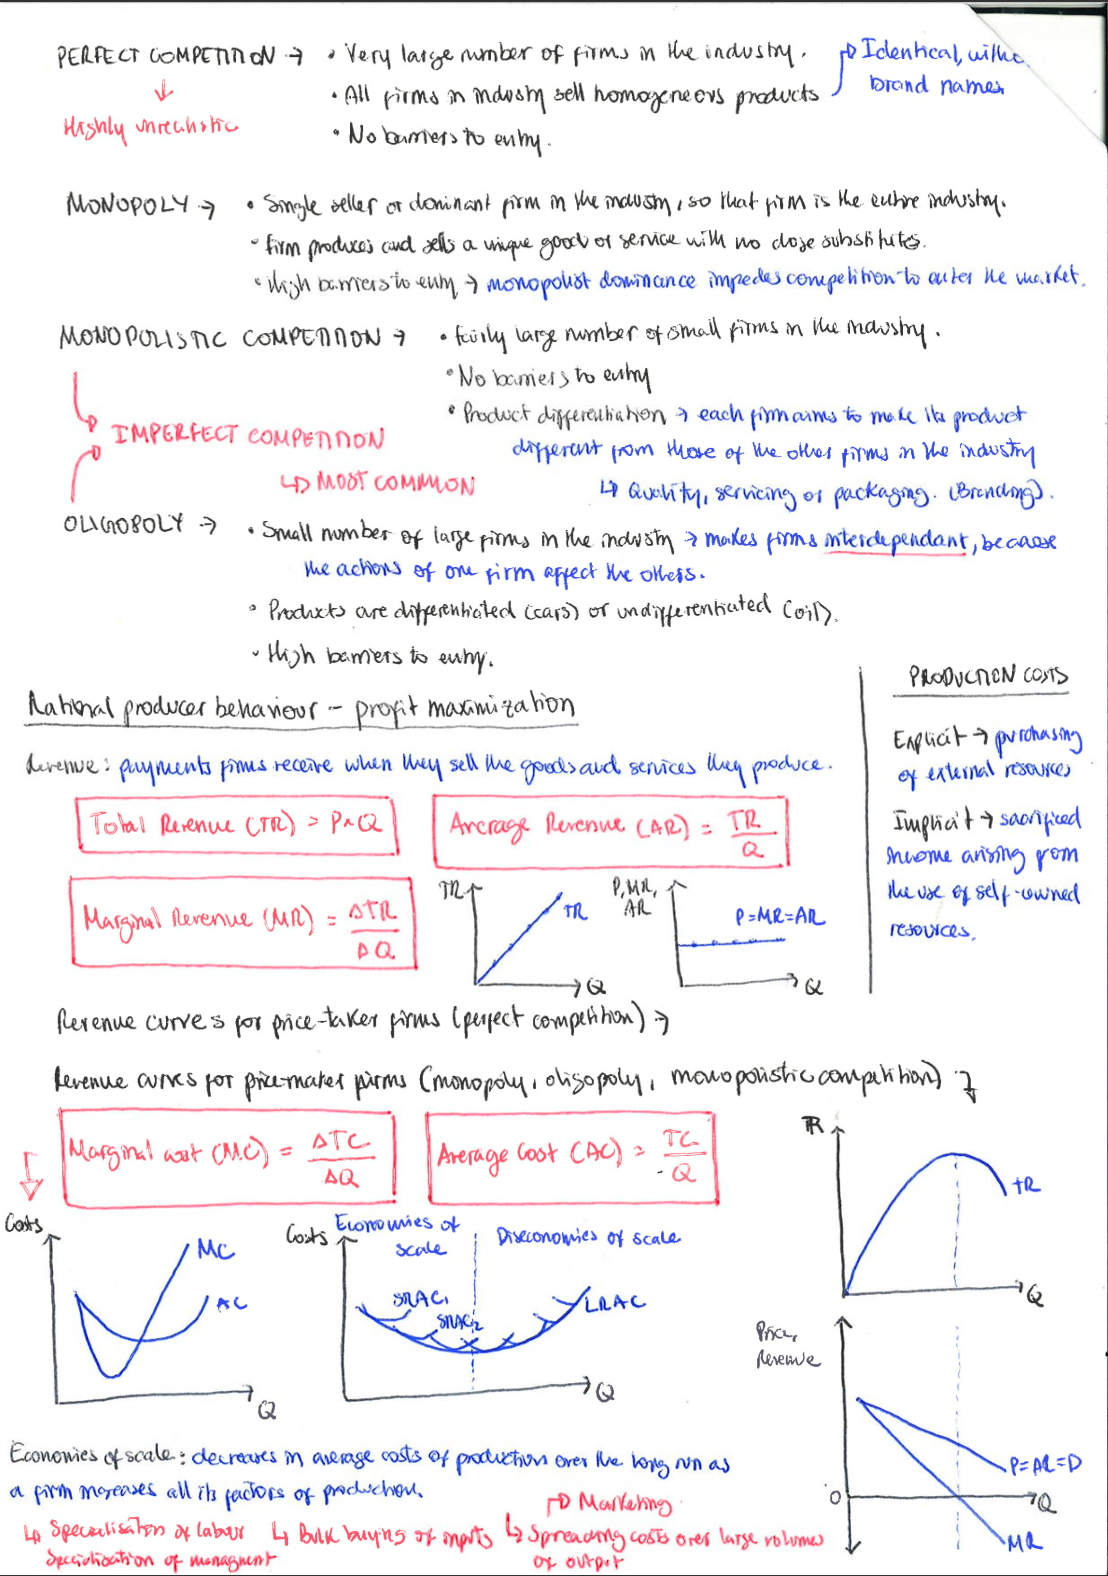 PERFECT COMPETITION → • Very large number of firms in the industry.
• All firms in industry sell homogeneous products
↳ Identical, witho
brand names
↓
Highly unrealistic
• No barriers to entry.
MONOPOLY → • Single seller or dominant firm in the industry, so that firm is the entire industry.
• firm produces and sells a unique good or service with no close substitutes.
• High barriers to entry → monopolist dominance impedes competition to enter the market.
MONOPOLISTIC COMPETITION → • fairly large number of small firms in the industry.
• No barriers to entry
• Product differentiation → each firm aims to make its product
different from those of the other firms in the industry
↳ Quality, servicing or packaging. (Branding).
IMPERFECT COMPETITION
↳ MOST COMMON
OLIGOPOLY → • Small number of large firms in the industry → makes firms interdependant, because
the actions of one firm affect the others.
• Products are differentiated (cars) or undifferentiated (oil).
• High barriers to entry.
Rational producer behaviour - profit maximization
Revenue: payments firms receive when they sell the goods and services they produce.
Total Revenue (TR) = P×Q
Average Revenue (AR) = TR
Q
Marginal Revenue (MR) = ΔTR
ΔQ
TR
TR
Q
P, MR,
AR
P=MR=AR
Q
PRODUCTION COSTS
Explicit → purchasing
of external resources
Implicit → sacrificed
income arising from
the use of self-owned
resources.
Revenue curves for price-taker firms (perfect competition) →
Revenue curves for price-maker firms (monopoly, oligopoly, monopolistic competition) →
Marginal cost (MC) = ΔTC
ΔQ
Average Cost (AC) = TC
Q
TR
TR
Q
Costs
MC
AC
Q
Costs
Economies of
scale
Diseconomies of scale
SRAC1
SRAC2
LRAC
Q
Price,
Revenue
P=AR=D
0
Q
MR
Economies of scale: decreases in average costs of production over the long run as
a firm increases all its factors of production.
↳ Specialisation of labour
Specialisation of managment
↳ Bulk buying of inputs
↱ Marketing
↳ Spreading costs over large volumes
of output